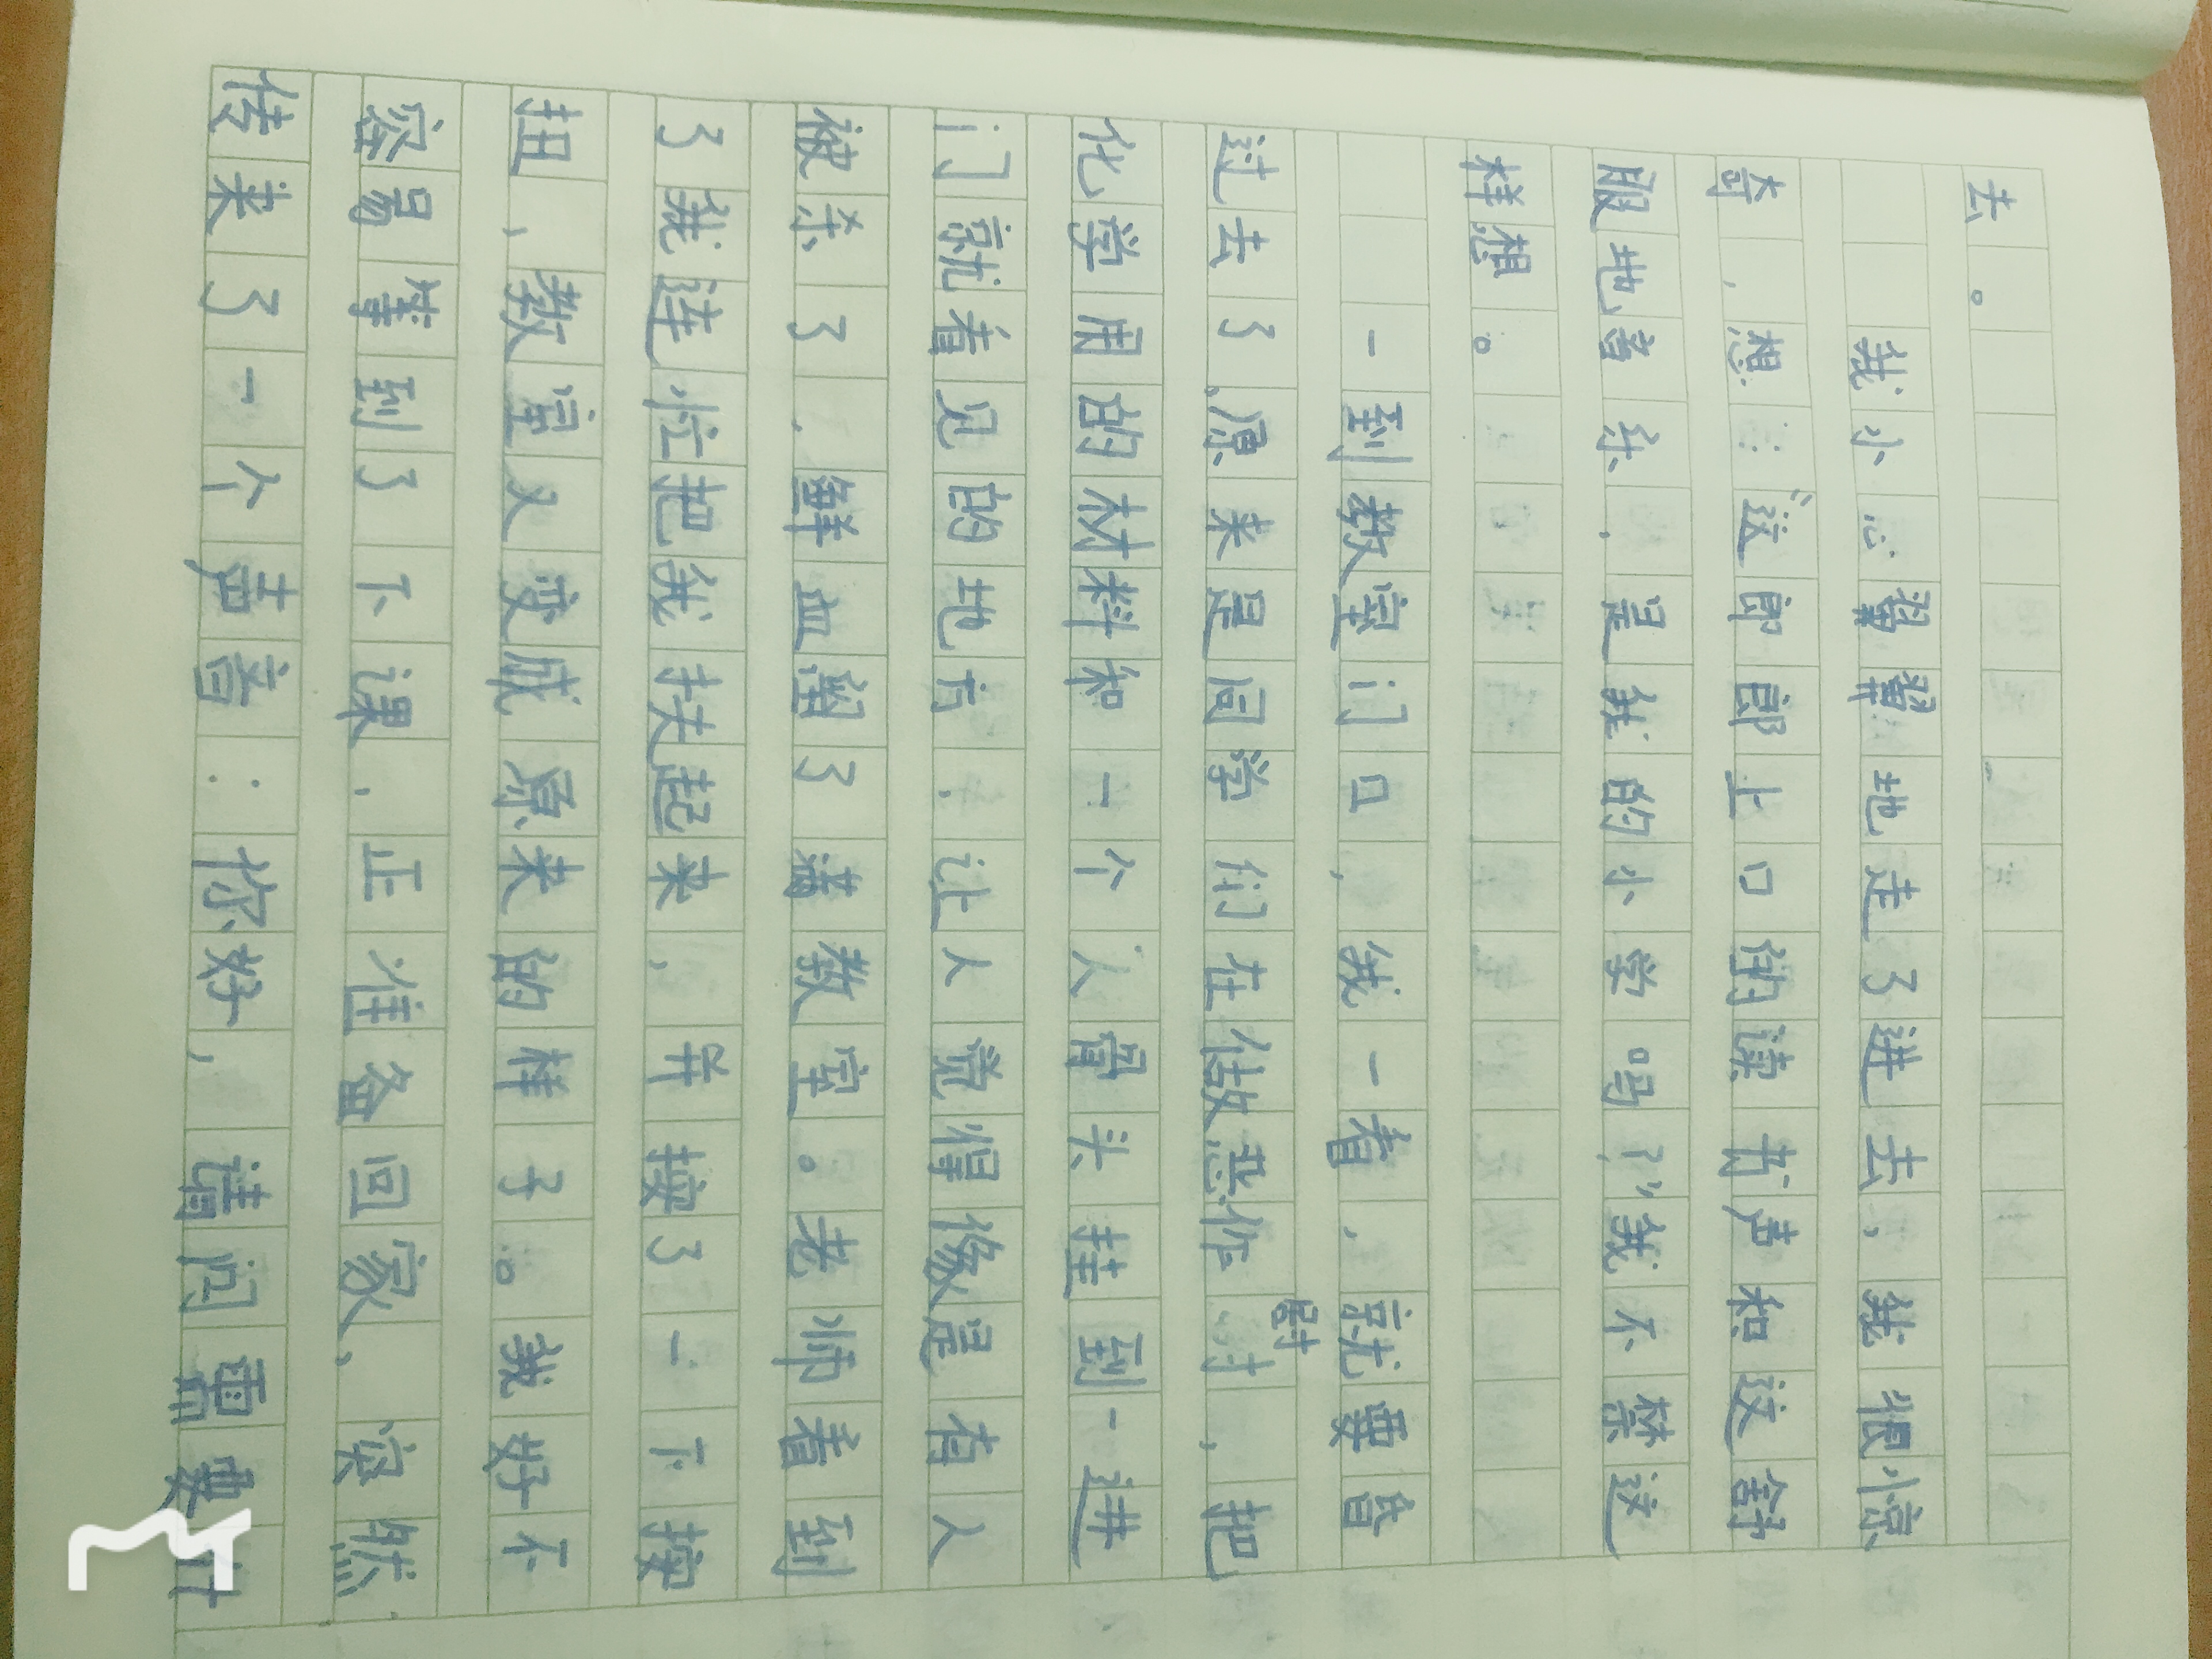 去。
我小心翼翼地走了进去，我很惊
奇，想：“这郎郎上口的读书声和这舒
服地音乐，是我的小学吗？”我不禁这
样想。
一到教室门口，我一看，就要昏
过去了，原来是同学们在做恶作尉，把
化学用的材料和一个人骨头挂到一进
门就看见的地方，让人觉得像是有人
被杀了，鲜血留了满教室。老师看到
了我连忙把我扶起来，并按了一下按
扭，教室又变成原来的样子。我好不
容易等到了下课，正准备回家，突然
传来了一个声音：你好，请问需要什